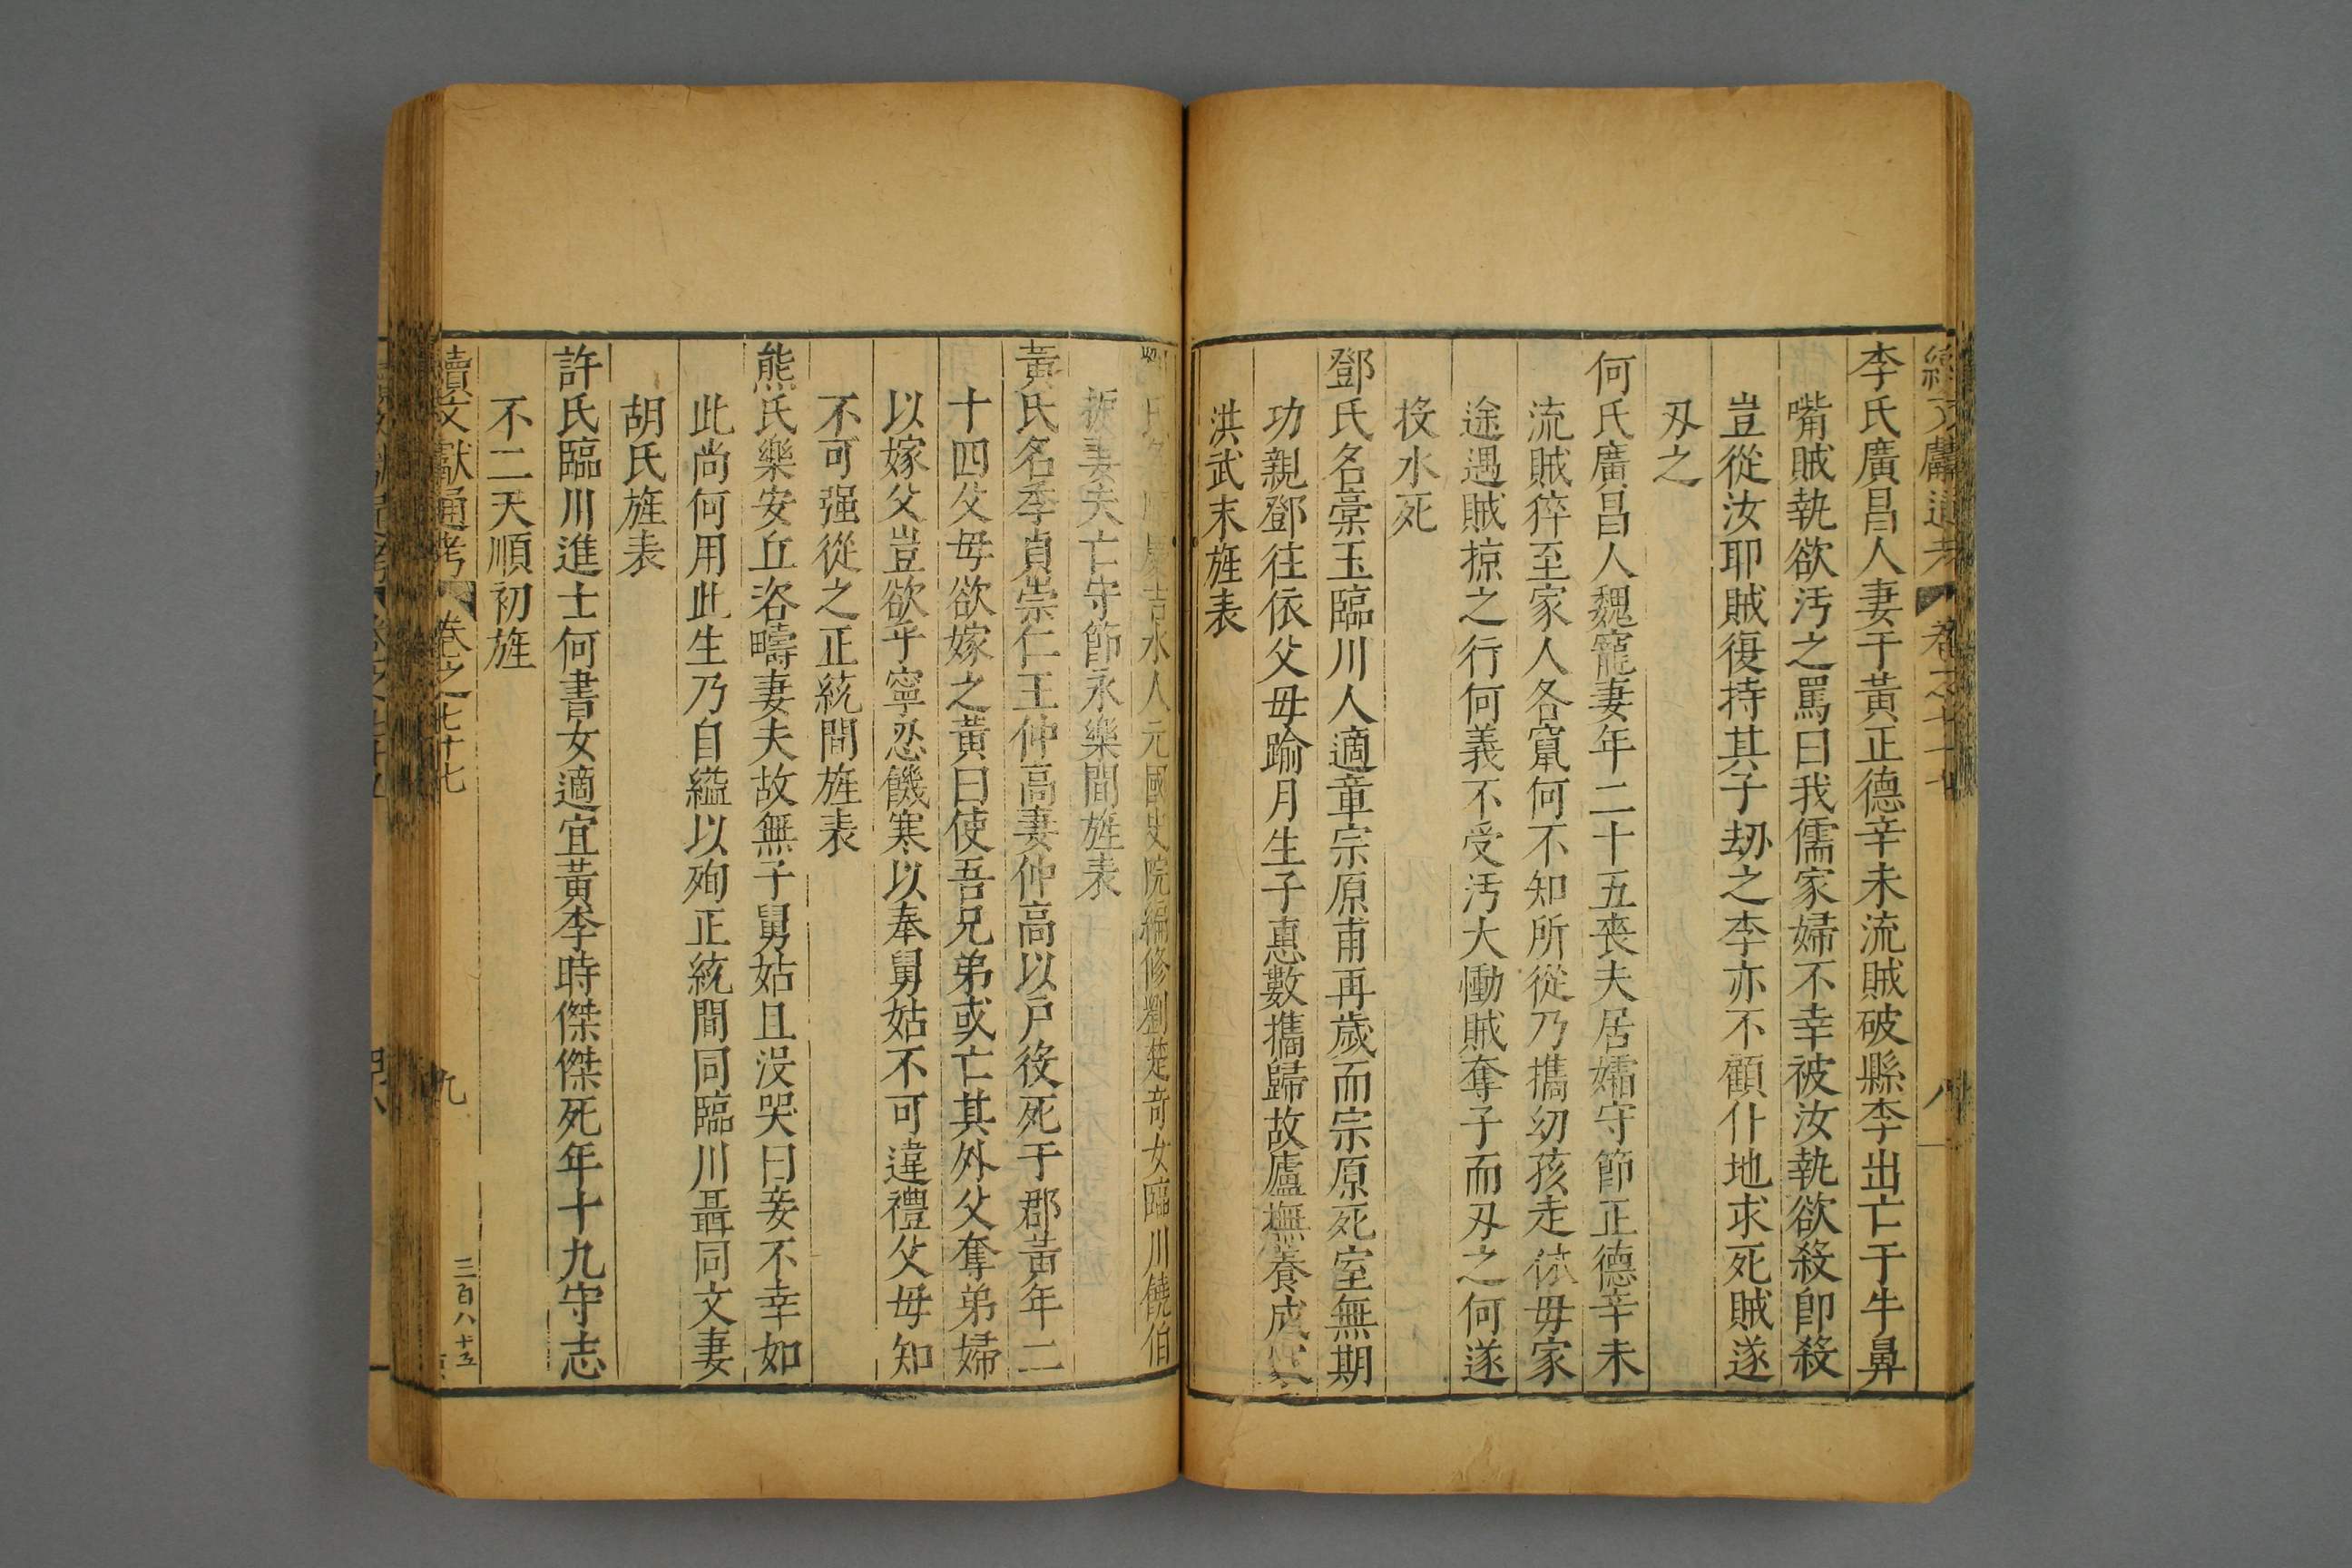 續文獻通考 卷之七十七 八
李氏廣昌人妻于黃正德辛未流賊破縣李出亡于牛鼻
嘴賊執欲汚之罵曰我儒家婦不幸被汝執欲殺卽殺
豈從汝耶賊復持其子刼之李亦不顧仆地求死賊遂
刄之
何氏廣昌人魏寵妻年二十五喪夫居孀守節正德辛未
流賊猝至家人各竄何不知所從乃攜幼孩走依母家
途遇賊掠之行何義不受汚大慟賊奪子而刄之何遂
投水死
鄧氏名棠玉臨川人適章宗原甫再歲而宗原死室無期
功親鄧往依父母踰月生子惪數攜歸故廬撫養成
洪武末旌表
氏 吉水人元國史院編修劉楚奇女臨川饒伯
振妻夫亡守節永樂間旌表
黃氏名季貞崇仁王仲高妻仲高以戶役死于郡黃年二
十四父母欲嫁之黃曰使吾兄弟或亡其外父奪弟婦
以嫁父豈欲乎寧忍饑寒以奉舅姑不可違禮父母知
不可强從之正統間旌表
熊氏樂安丘洺疇妻夫故無子舅姑且沒哭曰妾不幸如
此尚何用此生乃自縊以殉正統間同臨川聶同文妻
胡氏旌表
許氏臨川進士何書女適宜黃李時傑傑死年十九守志
不二天順初旌
續文獻通考 卷之七十七 九 三百八十五